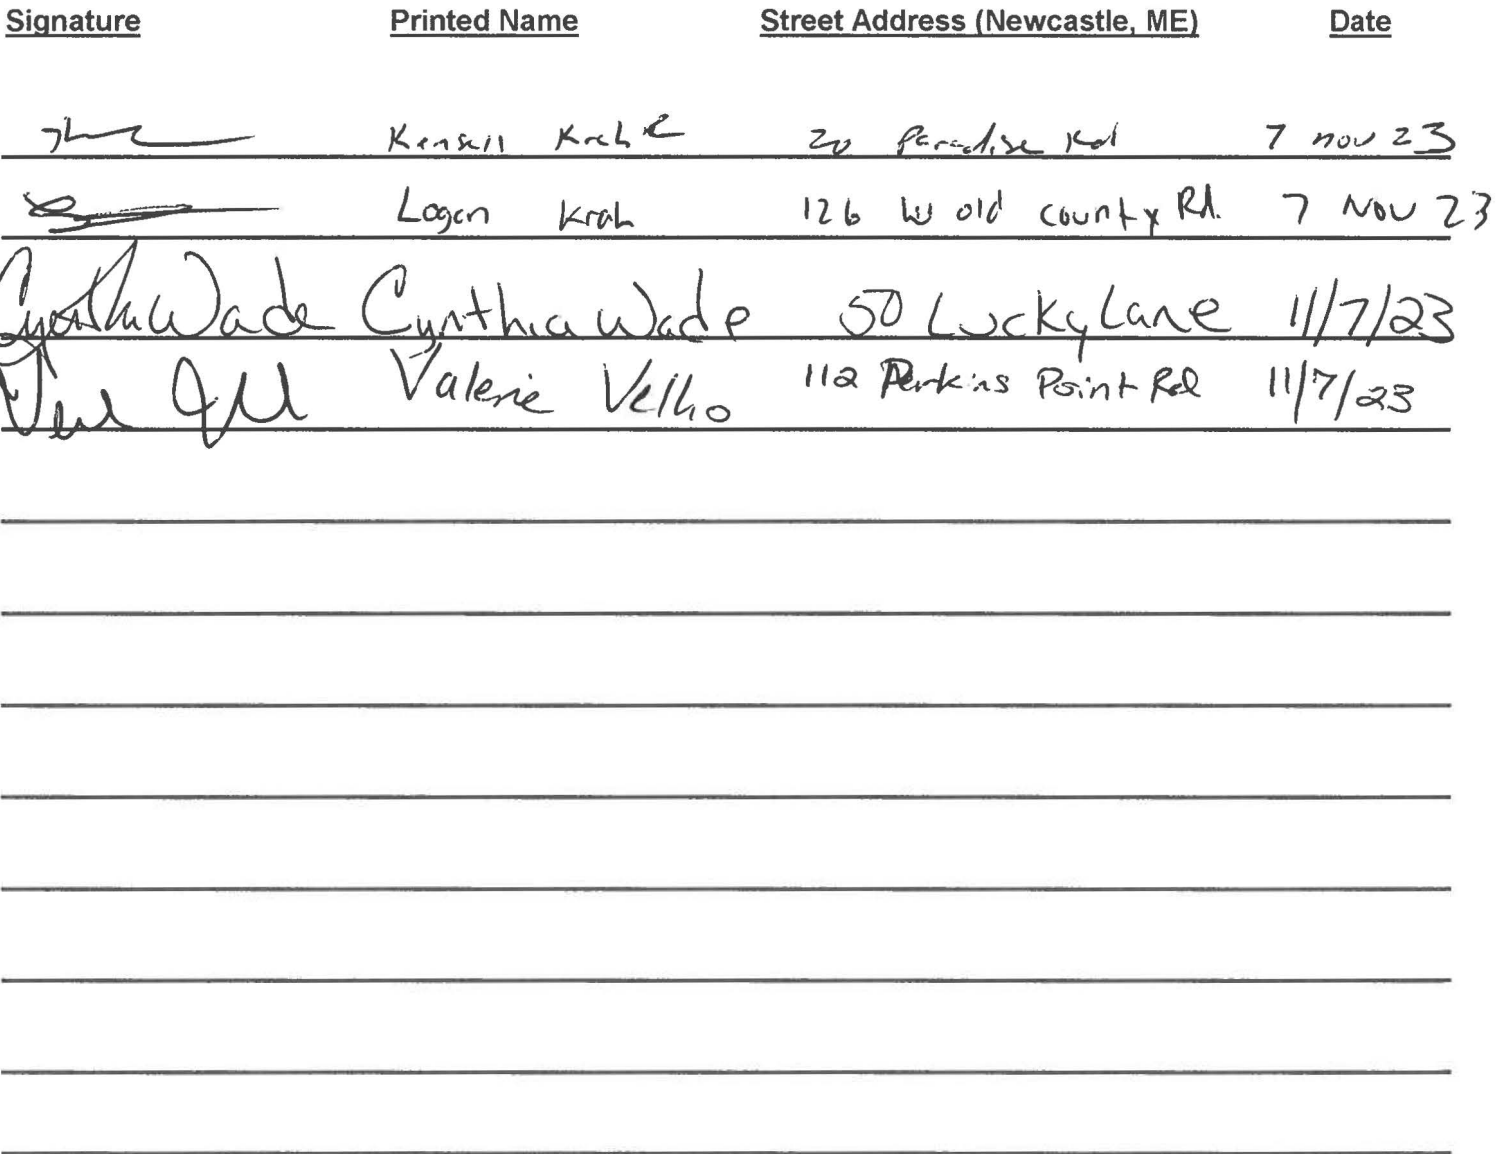 Signature Printed Name Street Address (Newcastle, ME) Date
20 Paradise Rd 7 nov 23
Logan Krah 126 W old county Rd. 7 Nov 23
Cynthia Wade Cynthia Wade 50 Lucky Lane 11/7/23
Valerie Velho 112 Perkins Point Rd 11/7/23